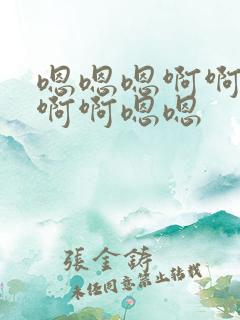 嗯嗯嗯啊啊
啊啊嗯嗯
張金鑄
未经同意禁止转载